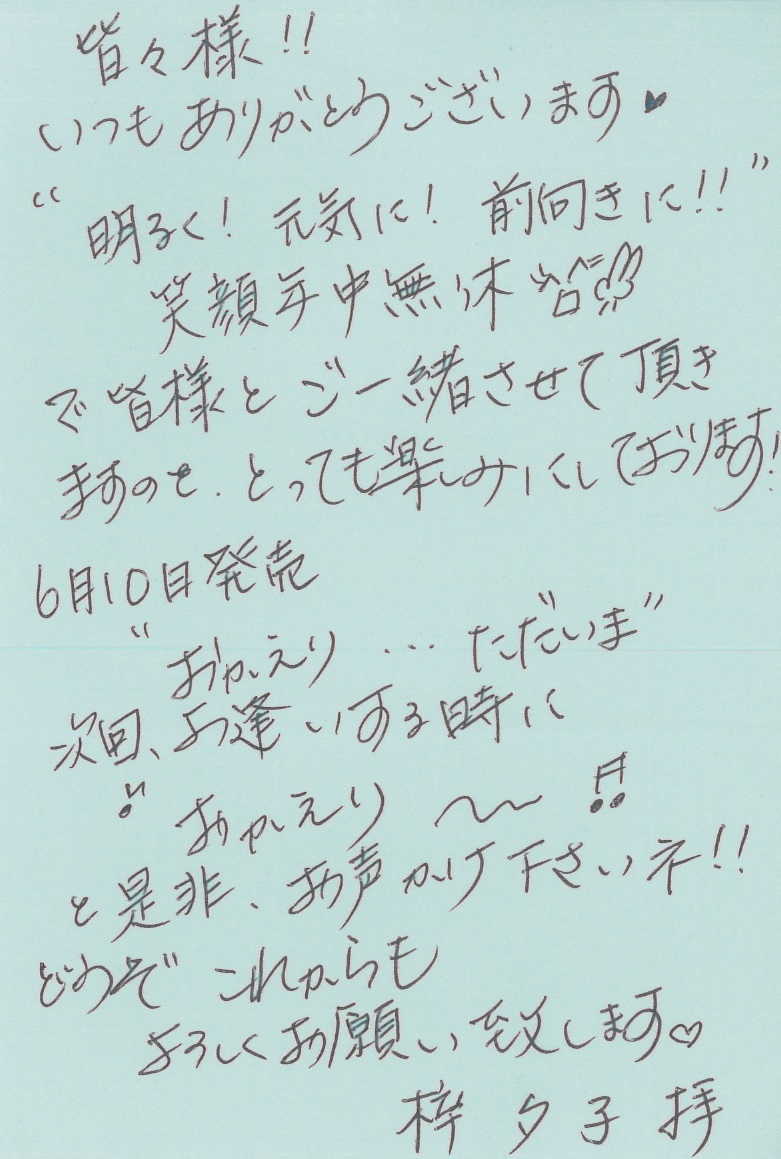 皆々様!!
いつもありがとうございます♥
“明るく! 元気に! 前向きに!!”
笑顔年中無休
で皆様とご一緒させて頂き
ますのを、とっても楽しみにしております!
6月10日発売
“おかえり…ただいま”
次回、お逢いする時に
“おかえり〜〜♬
と是非、お声かけ下さいネ!!
どうぞ これからも
よろしくお願い致します♡
梓 夕子 拝